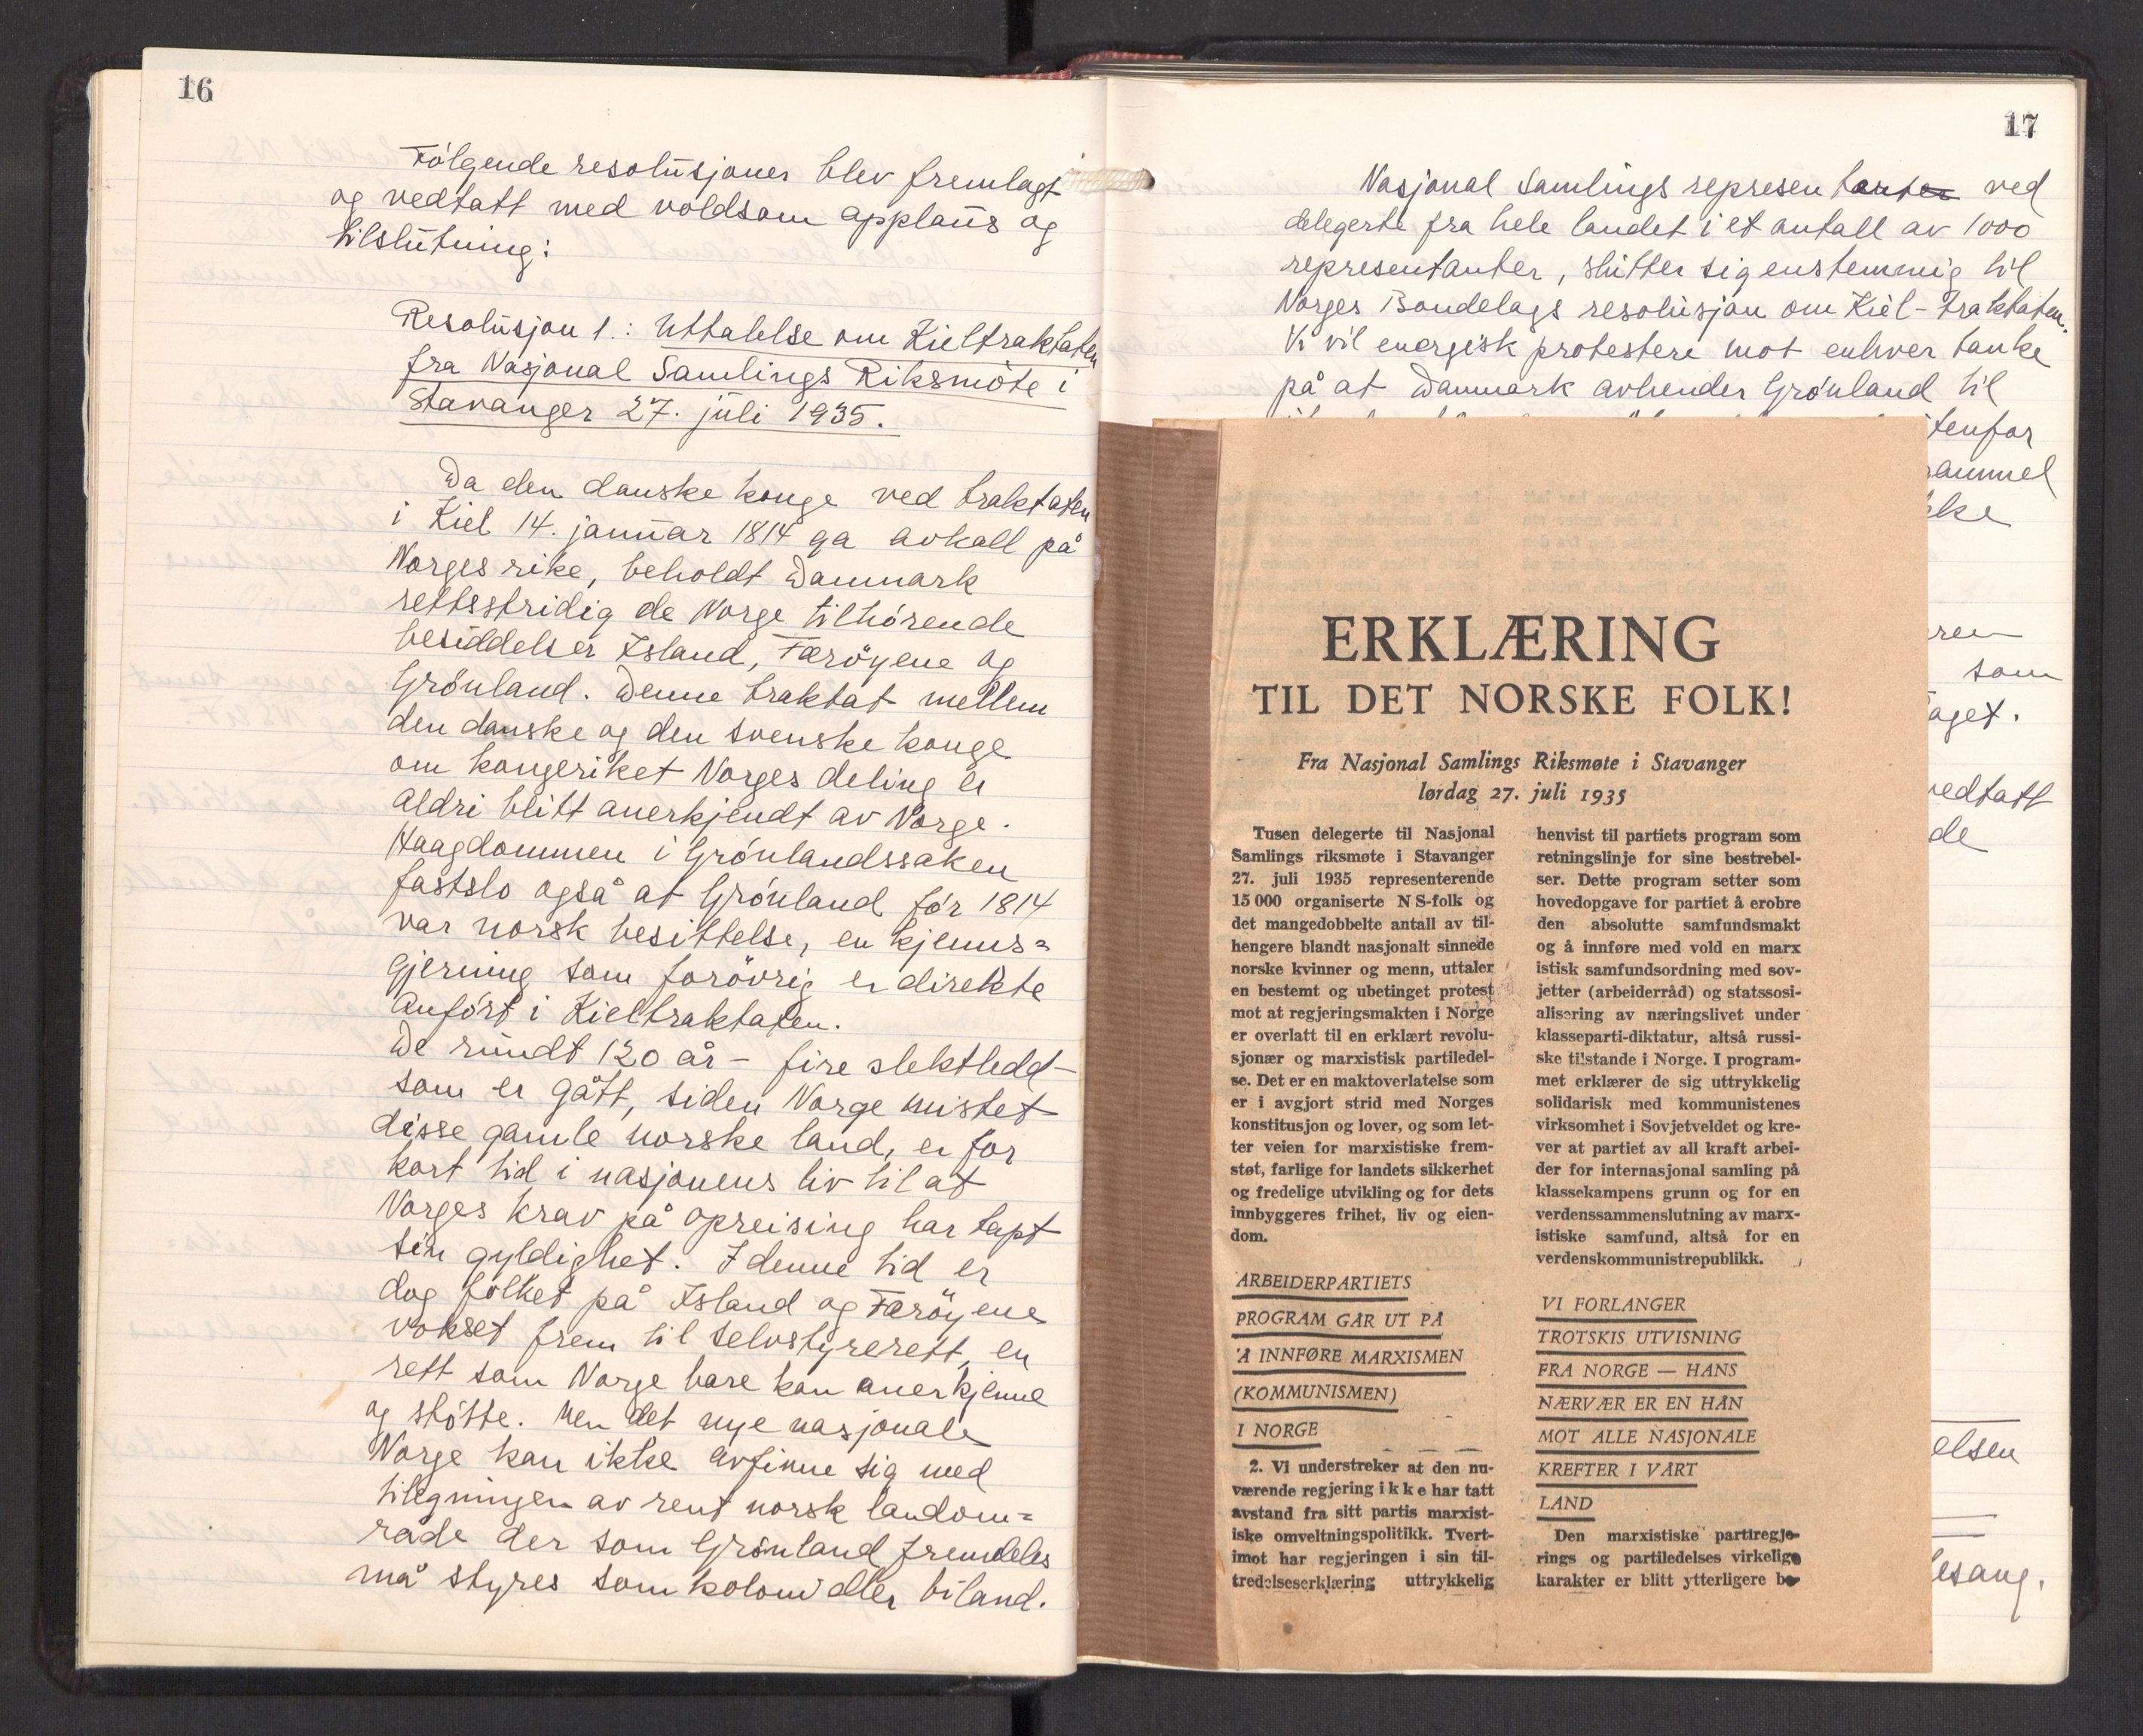 16
Følgende resolusjoner blev fremlagt
og vedtatt med voldsom applaus og
tilslutning:
Resolusjon 1.: Uttalelse om Kieltraktaten
fra Nasjonal Samlings Riksmöte i
Stavanger 27. juli 1935.
Da den danske konge ved traktaten
i Kiel 14. januar 1814 ga avkall på
Norges rike, beholdt Danmark
rettsstridig de Norge tilhørende
besiddelser Island, Færöyene og
Grønland. Denne traktat mellem
den danske og den svenske konge
om kongeriket Norges deling er
aldri blitt anerkjendt av Norge.
Haagdommen i Grønlandssaken
fastslo også at Grønland før 1814
var norsk besittelse, en kjenns=
gjerning som forövrig er direkte
anført i Kieltraktaten.
De rundt 120 år - fire slektledd -
som er gått, siden Norge mistet
disse gamle norske land, er for
kort tid i nasjonens liv til at
Norges krav på opreising har tapt
sin gyldighet. I denne tid er
dog folket på Island og Færöyene
vokset frem til selvstyrerett, en
rett som Norge bare kan anerkjenne
og støtte. Men det nye nasjonale
Norge kan ikke avfinne sig med
tilegningen av rent norsk landom=
råde der som Grønland fremdeles
må styres som koloni eller biland.
17
Nasjonal Samlings representanter ved
delegerte fra hele landet i et antall av 1000
representanter, slutter sig enstemmig til
Norges Bondelags resolusjon om Kiel-Traktaten.
Vi vil energisk protestere mot enhver tanke
på at Danmark avhender Grønland til
tenfor
ammel
kke
ren
som
aget.
vedtatt
de
elsen
esang.
ERKLÆRING
TIL DET NORSKE FOLK!
Fra Nasjonal Samlings Riksmøte i Stavanger
lørdag 27. juli 1935
Tusen delegerte til Nasjonal
Samlings riksmøte i Stavanger
27. juli 1935 representerende
15 000 organiserte NS-folk og
det mangedobbelte antall av til-
hengere blandt nasjonalt sinnede
norske kvinner og menn, uttaler
en bestemt og ubetinget protest
mot at regjeringsmakten i Norge
er overlatt til en erklært revolu-
sjonær og marxistisk partiledel-
se. Det er en maktoverlatelse som
er i avgjort strid med Norges
konstitusjon og lover, og som let-
ter veien for marxistiske frem-
støt, farlige for landets sikkerhet
og fredelige utvikling og for dets
innbyggeres frihet, liv og eien-
dom.
ARBEIDERPARTIETS
PROGRAM GÅR UT PÅ
Å INNFØRE MARXISMEN
(KOMMUNISMEN)
I NORGE
2. Vi understreker at den nu-
værende regjering ikke har tatt
avstand fra sitt partis marxist-
iske omveltningspolitikk. Tvert-
imot har regjeringen i sin til-
tredelseserklæring uttrykkelig
henvist til partiets program som
retningslinje for sine bestrebel-
ser. Dette program setter som
hovedopgave for partiet å erobre
den absolutte samfundsmakt
og å innføre med vold en marx
istisk samfundsordning med sov-
jetter (arbeiderråd) og statssosi-
alisering av næringslivet under
klasseparti-diktatur, altså russi-
ske tilstande i Norge. I program-
met erklærer de sig uttrykkelig
solidarisk med kommunistenes
virksomhet i Sovjetveldet og kre-
ver at partiet av all kraft arbei-
der for internasjonal samling på
klassekampens grunn og for en
verdenssammenslutning av marx-
istiske samfund, altså for en
verdenskommunistrepublikk.
VI FORLANGER
TROTSKIS UTVISNING
FRA NORGE — HANS
NÆRVÆR ER EN HÅN
MOT ALLE NASJONALE
KREFTER I VÅRT
LAND
Den marxistiske partiregje-
rings og partiledelses virkelige
karakter er blitt ytterligere be-